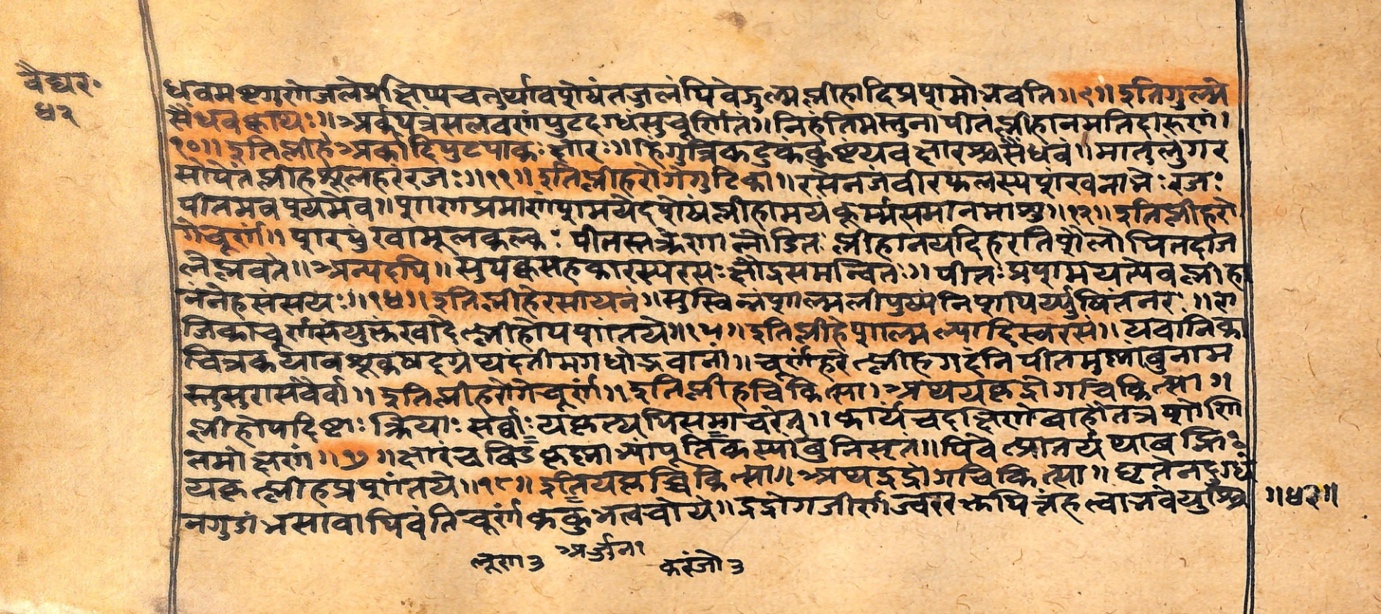 वैद्यर॰
४२
धवमष्टगुणेजलेप्रक्षिप्यचतुर्थावशेषंतज्जलंपिवेजुल्मप्लीहादिप्रशमोभवति॥९॥इतिगुल्मे
सैंधवक्वाथः॥अर्कपत्रंसलवणंपुटदग्धंसुचूर्णितं॥निहंतिमस्तुनापीतंप्लीहानमतिदारुणं।
१०॥इतिप्लीहेअर्कादिपुटपाकः क्षारः॥हिंगुत्रिकटुकंकुष्टंयवक्षारश्चसैंधवं॥मातुलुंगर
सोपेतंप्लीहशूलहरंरजः॥११॥इतिप्लीहरोगेगुटिका॥रसेनजंवीरफलस्यशंखनाभेःरजः
पीतमवश्यमेव॥शाणप्रमाणंशमयेदशेषंप्लीहामयंकूर्म्मसमानमाशु॥१२॥इतिप्लीहरो
गेचूर्णं॥शरपुंखामूलकल्कः पीतस्तक्रेणालोडितः प्लीहानंयदिहरतिशैलोपितदाज
लेप्लवते॥अन्यदपि॥सुपक्वसहकारस्यरसःक्षौद्रसमन्वितः॥पीतःप्रशमयत्येवप्लीहा
नंनेहसंसयः॥१४॥इतिप्लीहेरसायनं॥सुस्विन्नंशाल्मलीपुष्पंनिशापर्य्युषितंनरः॥रा
जिकाचूर्णसंयुक्तंखादेत्प्लीहोपशांतये॥१५॥इतिप्लीहेशाल्मल्यादिस्वरसं॥यवानिका
चित्रकयावशूकषड्ग्रंथदंतीमगधोद्भवानां॥चूर्णंहरेत्प्लीहगदंनिपीतमुष्णांबुनाम
स्तुसुरासवैर्वा॥इतिप्लीहरोगेचूर्णं॥इतिप्लीहचिकित्सा॥अथयकृद्रोगचिकित्सा॥
प्लीहोपदिष्टाः क्रियाः सर्वाः यकृत्यपिसमाचरेत्॥कार्यंचदक्षिणेबाहौतत्रशोणि
तमोक्षणं॥१७॥क्षारंचविडकृष्णाभ्यांपूतिकस्यांबुनिस्रुतं॥पिवेत्प्रातर्यथावह्नि
यकृत्प्लीहप्रशांतये॥१८॥इतियकृच्चिकित्सा॥अथहृद्रोगचिकित्सा॥घृतेनदुग्धे
नगुडांभसावापिवंतिचूर्णंककुभत्वचोये॥हृद्रोगजीर्णज्वररक्तपित्तंहत्वाभवेयुश्चि ॥४२॥
लूण३ अर्जुन१ करंजो३